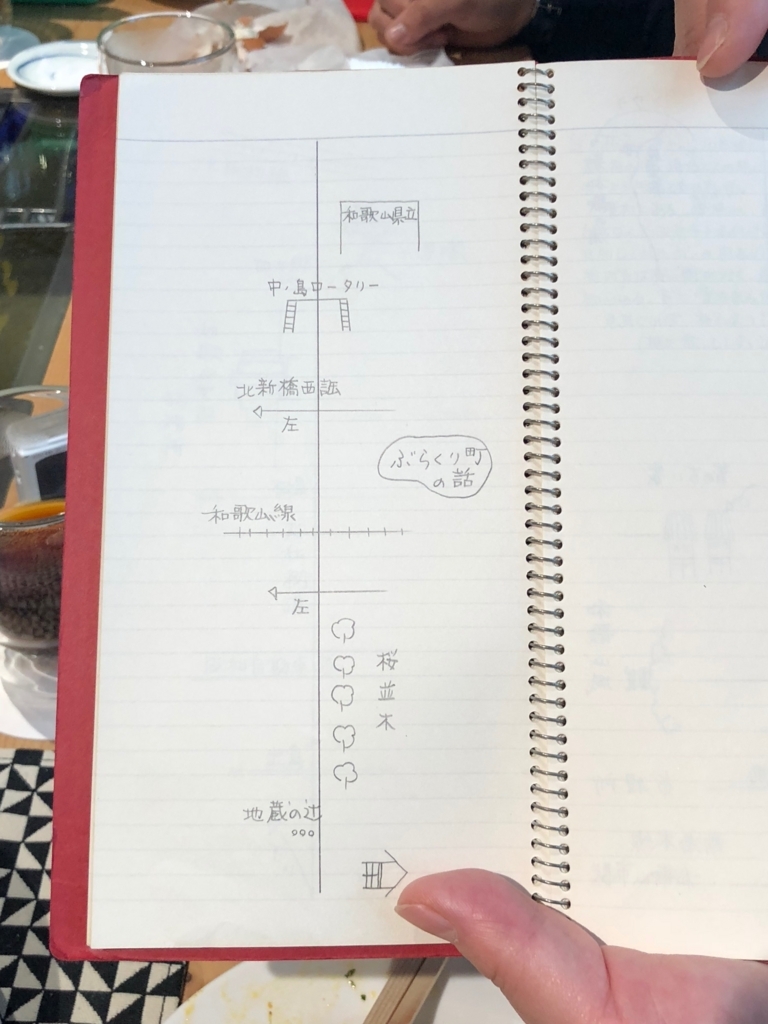 和歌山県立
中ノ島ロータリー
北新橋西詰
左
ぶらくり町
の話
和歌山線
左
桜並木
地蔵の辻